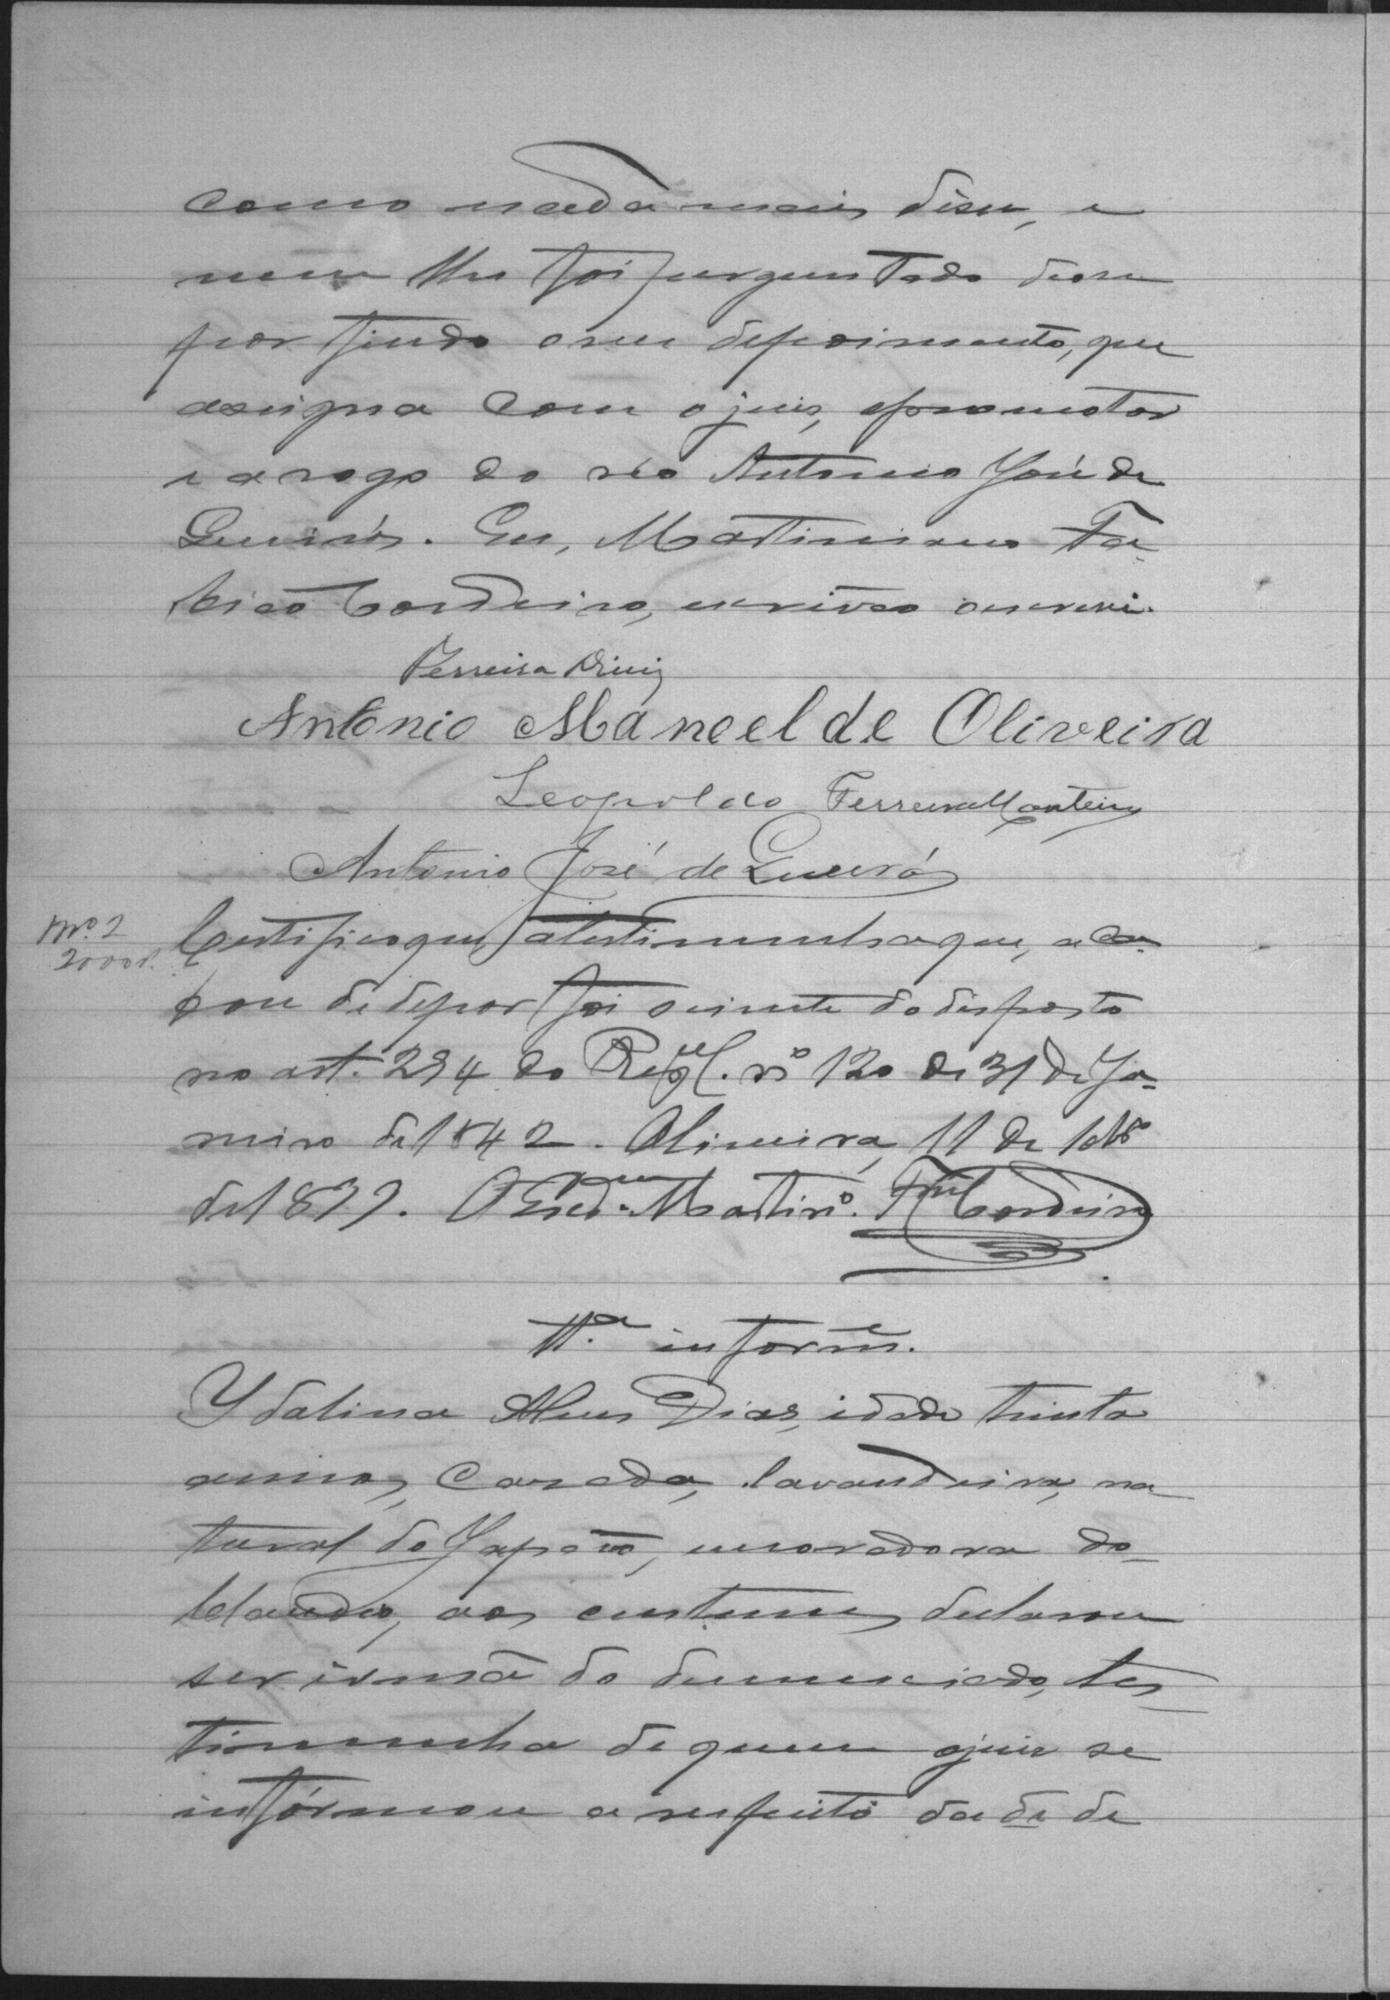 como nada mais disse, e
nem lhe foi perguntado deu-se
por findo o seu depoimento, que
assigna com o juiz, o promotor
e a rogo do réo Antonio José de
Queiros. Eu, Martiniano Fa-
bicio Cordeiro, escrivão o escrevi.
Ferreira Diniz
Antonio Manoel de Oliveira
Leopoldo Ferreira Monteiro
Antonio José de Queiros
Certifico que a testimunha que, aca-
bou de depor foi sciente do disposto
no art. 294 do Regul. nº 120 de 31 de Ja-
neiro de 1842. Oliveira, 11 de
de 1899. O Escr.am Martinº. Cordeiro
Nº. 2
2000 r.
Tª. inform.e
Ydalina Alves Dias, idade trinta
annos, casada, lavandeira, na
tural do Japão, moradora do
Claudio, aos custumes declarou
ser irmã do denunciado, tes
timunha de quem o juiz se
informou a respeito da de de